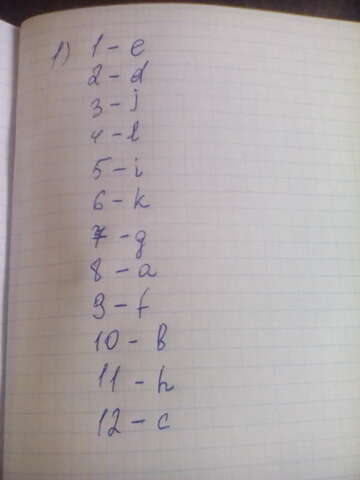 1) 1 - e
2 - d
3 - j
4 - l
5 - i
6 - k
7 - g
8 - a
9 - f
10 - b
11 - h
12 - c